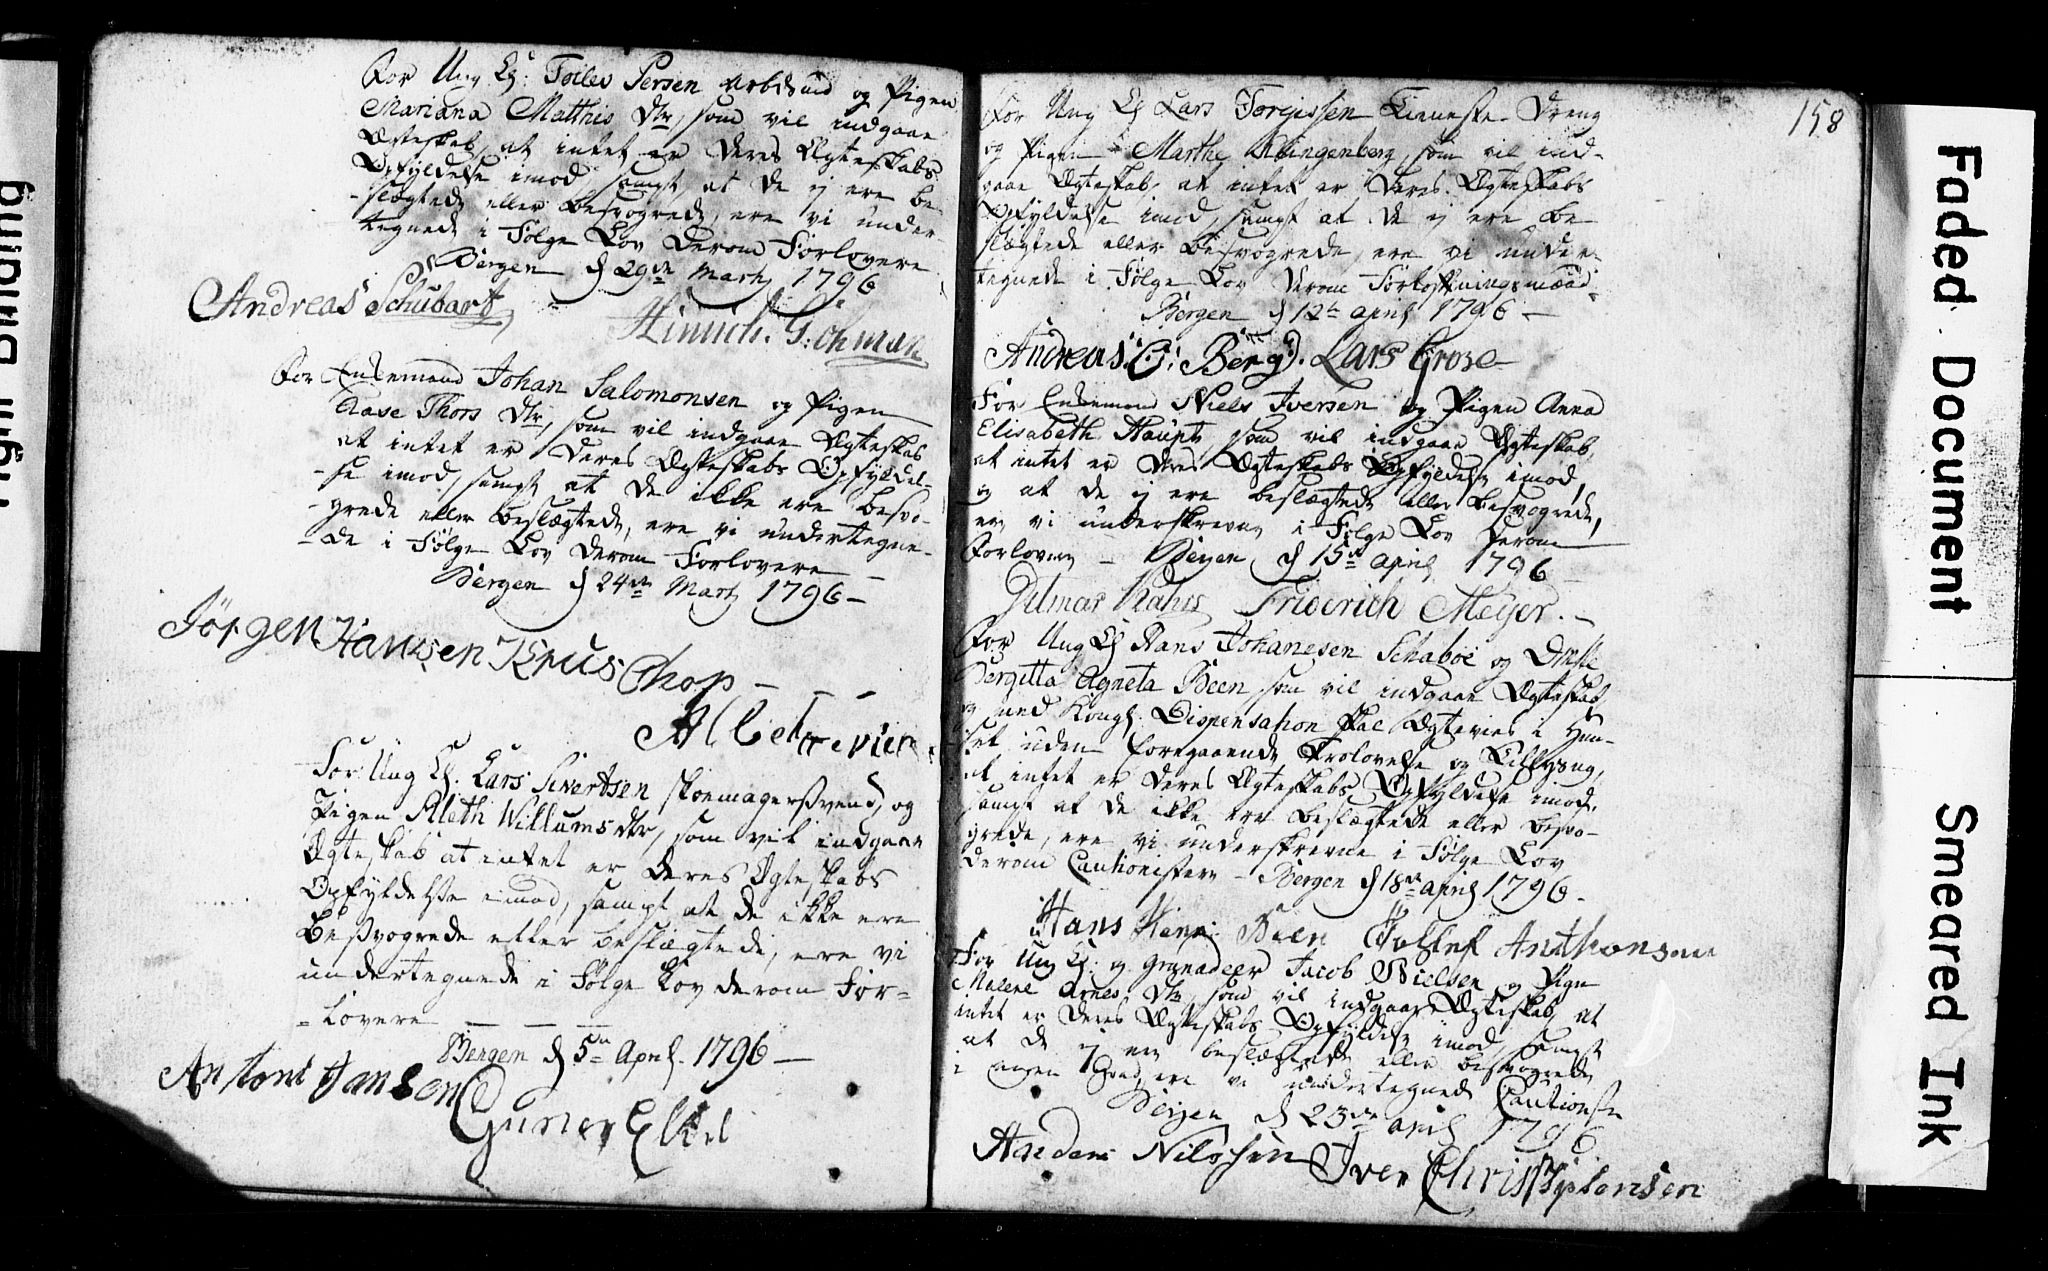 For Ung Kl: Tollev Persen Arbdsmd og Pigen
Mariana Matthis Dtr, som vil indgaae
Ægteskab, at intet er Deres Ægteskabs
Opfyldelse imod, sampt at De ej ere be-
slægtede eller besvogrede, ere vi under-
tegnede i Følge Lov Derom Forlovere
Bergen d 29de Martz 1796
Andreas Schubart
Hinrich
For Enkemand Johan Salomonsen og Pigen
Aase Thors Dtr, som vil indgaae Ægteskab
at intet er Deres Ægteskabs Opfyldel-
-se imod, sampt at De ikke ere besvo-
-grede eller beslægtede, ere vi undertegne-
-de i Følge Lov Derom Forlovere -
Bergen d 24de Martz 1796 -
Jörgen Hansen Krus Chop - - -
For Ung Kl. Lars Sivertsen skoemagersvend, og
Pigen Aleth Willums dtr, som vil indgaae
Ægteskab at intet er Deres Ægteskabs
Opfyldelsse imod, sampt at De ikke ere
Besvogrede eller beslægtede, ere vi
undertegnede i Følge Lov derom For-
-lovere
Bergen d 5te April. 1796 -
Antoni Janson
158
For Ung Kl Lars Tieneste Dreng
og Pigen Marthe Klingenberg, som vil ind-
gaae Ægteskab, at intet er Deres Ægteskabs
Opfyldelse imod, sampt at De ej ere be-
slægtede eller besvogrede, ere vi under-
tegnede i Følge Lov Derom Forlovningsmænd
Bergen d 12te April 1796 -
Andreas. O: Berg. Lars Grose
For Enkemand Niels Iversen og Pigen Anna
Elisabeth Hauptz som vil indgaae Ægteskab,
at intet er Deres Ægteskabs Opfyldelse imod,
og at De ej ere beslægtede eller besvogrede,
ere vi underskrevne i Følge Lov Derom
Forlovere - Bergen d 15de April 1796
Friderich Meyer. -
For Ung Kl Hans Johanesen Schaboe og
Bergitta Agneta Been som vil indgaae Ægteskab
og med Kongl: Dispensation skal Ægtevies i Huu-
set uden foregaaende Trolovelse og Tillysng,
at intet er Deres Ægteskabs Opfyldelse imod.
sampt at De ikke ere beslægtede eller besvo-
grede, ere vi underskrevne i Følge Lov
derom Cautionister - Bergen d 18de April 1796 -
Hans Been Anthonsen
For Ung Kl: og Granadeer Jacob Nielsen og Pign
Malene Arnes Dtr, som vil indgaae Ægteskab, at
intet er Deres Ægteskabs Opfyldelse imod, sampt
at De ej ere beslægtede eller besvogrede
i nogen Grad, ere vi undertegnede Cautionister
Bergen d 23de April 1796
Anders Nilssen Iver Christophensen
Faded Document Smeared Ink
Tight Binding